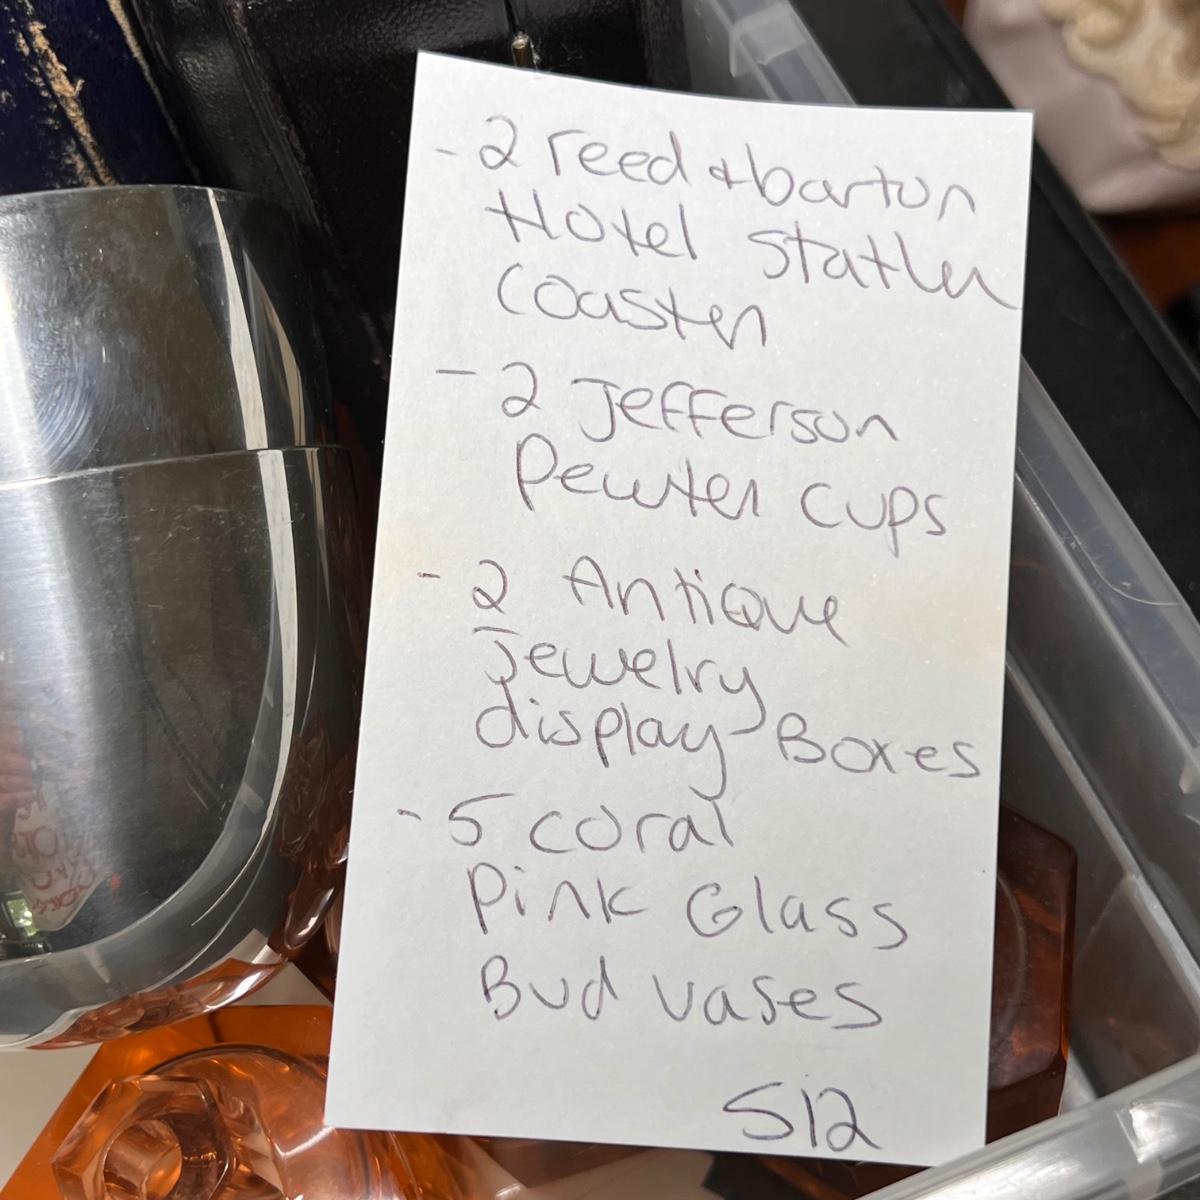 - 2 reed & barton
Hotel Statler
coaster
- 2 Jefferson
Pewter cups
- 2 Antique
Jewelry
display Boxes
- 5 coral
Pink Glass
Bud vases
S12